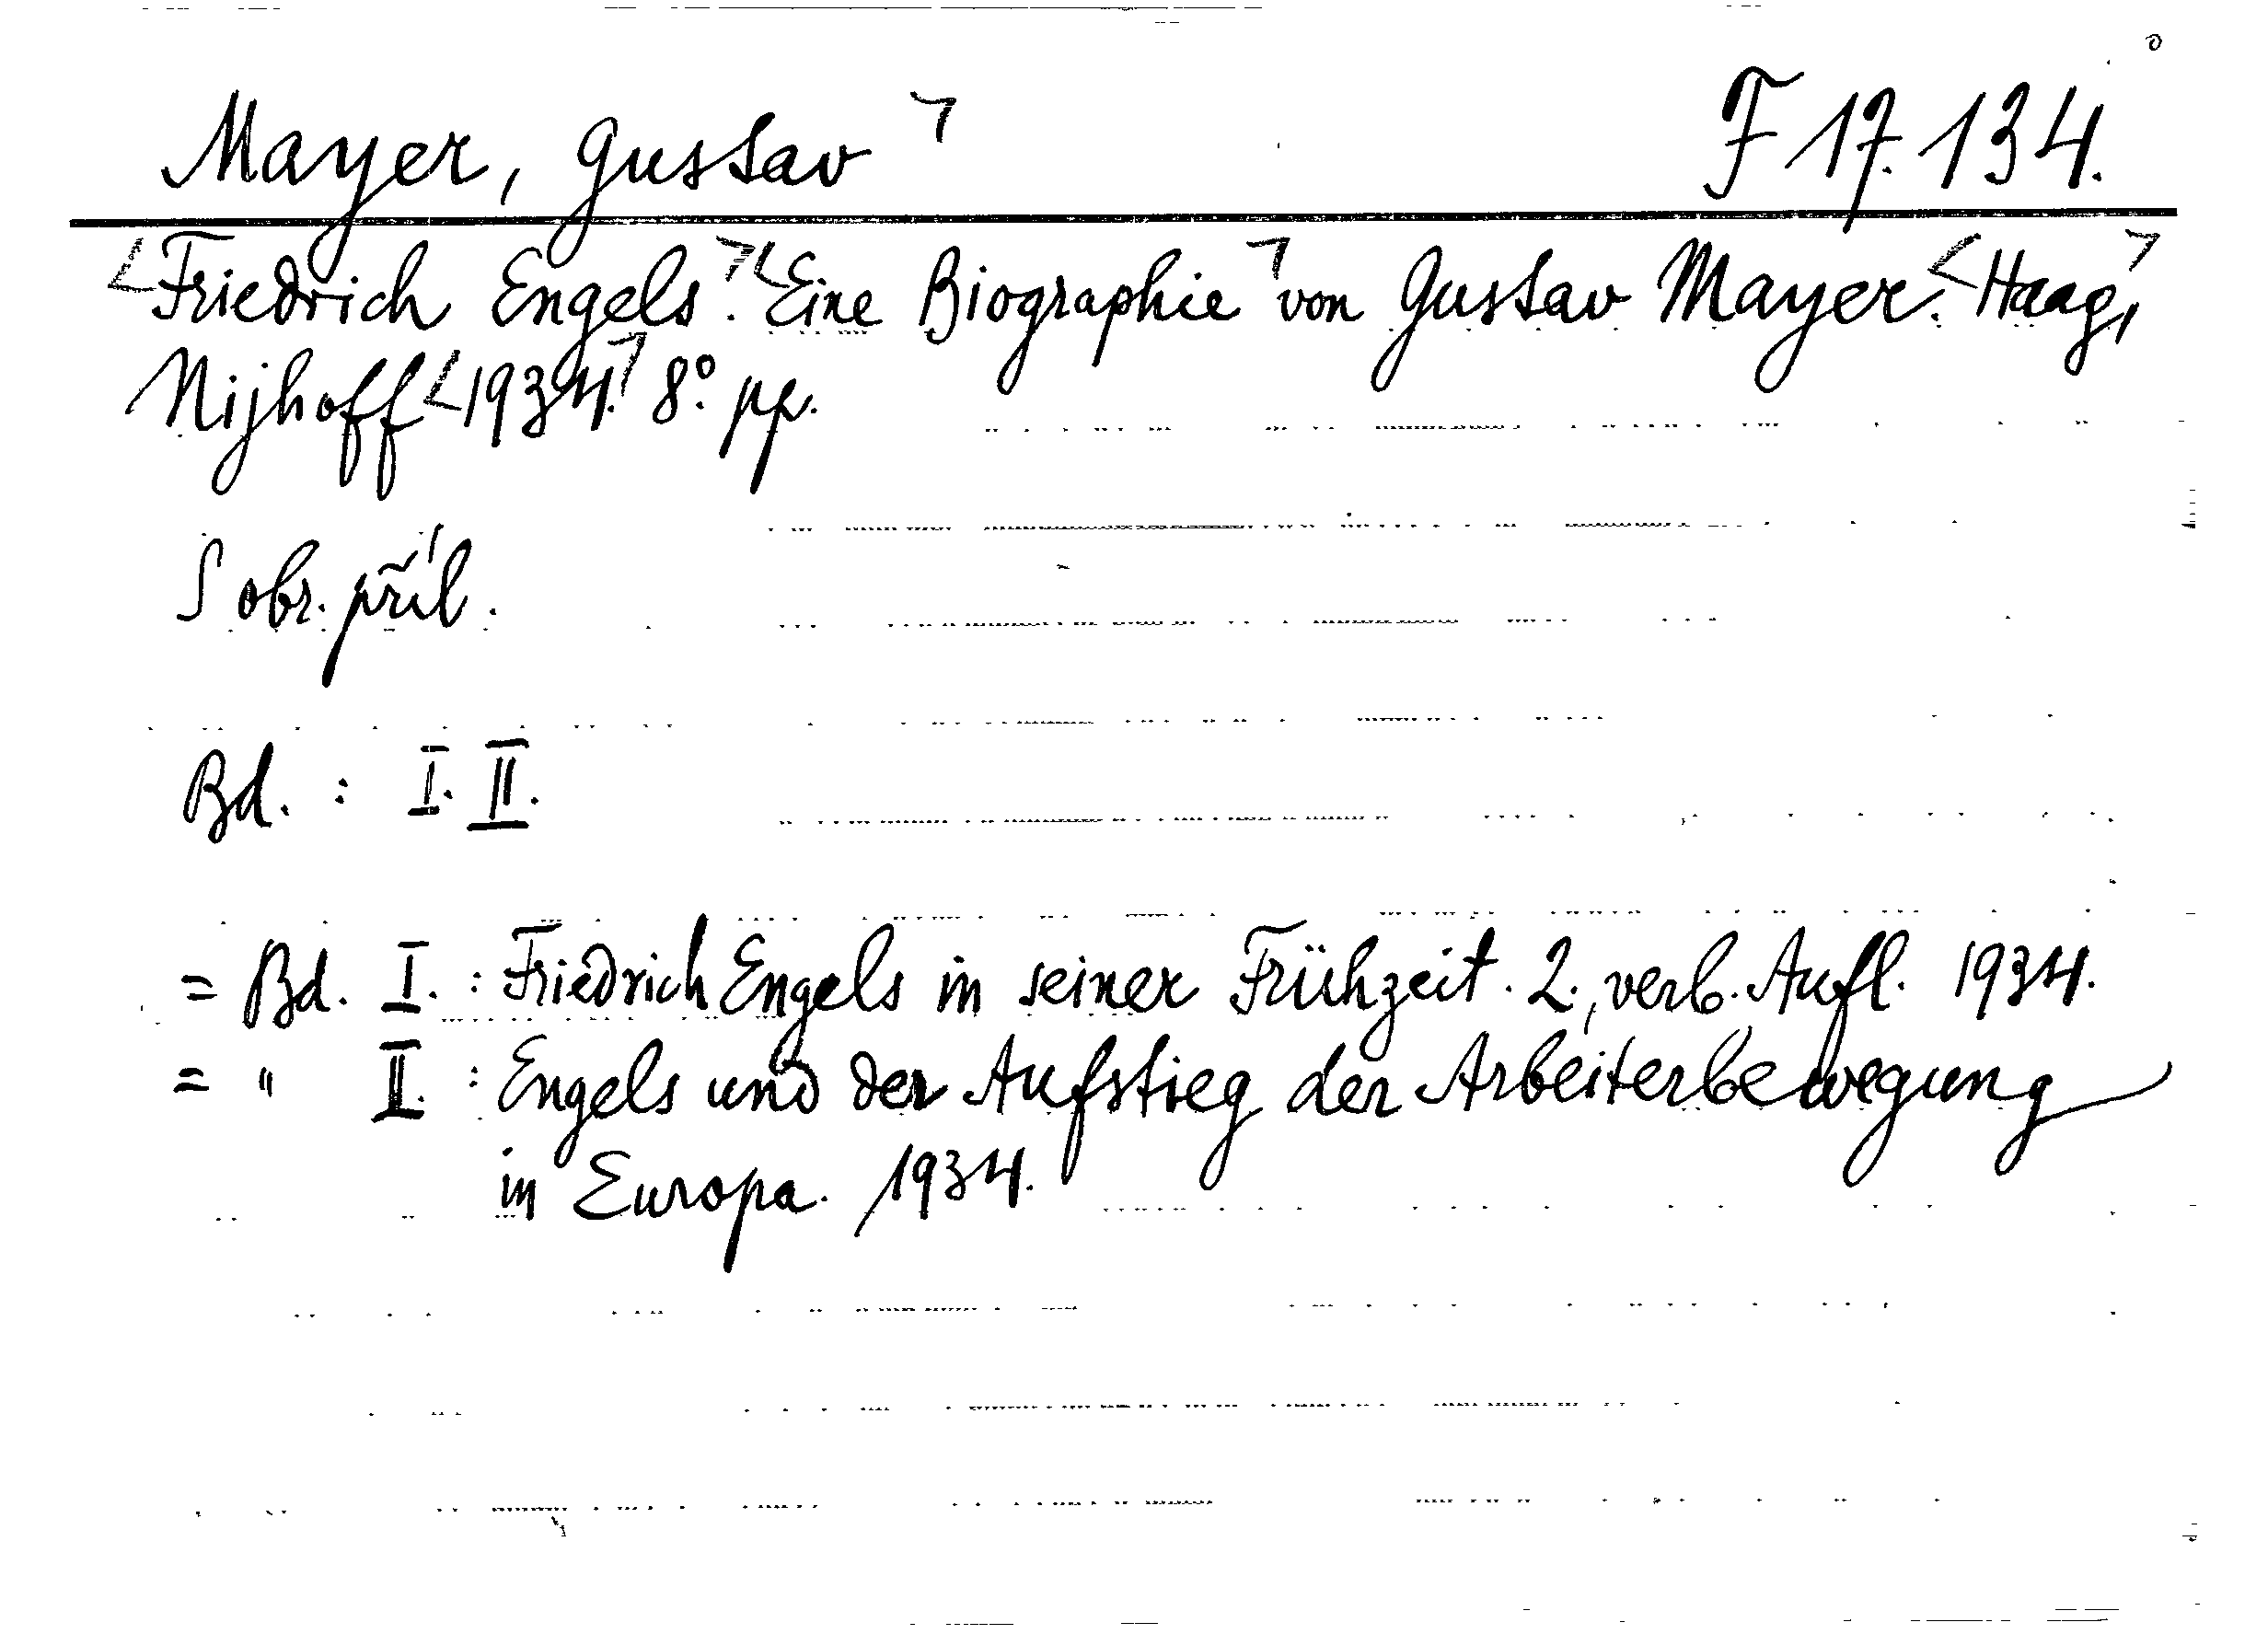 Mayer, Gustav F 17.134.
Friedrich Engels. Eine Biographie von Gustav Mayer. Haag,
Nijhoff 1934. 8°. pp.
S obr. příl.
Bd. : I. II.
= Bd. I. : Friedrich Engels in seiner Frühzeit. 2., verb. Aufl. 1934.
= " II. : Engels und der Aufstieg der Arbeiterbewegung
in Europa. 1934.